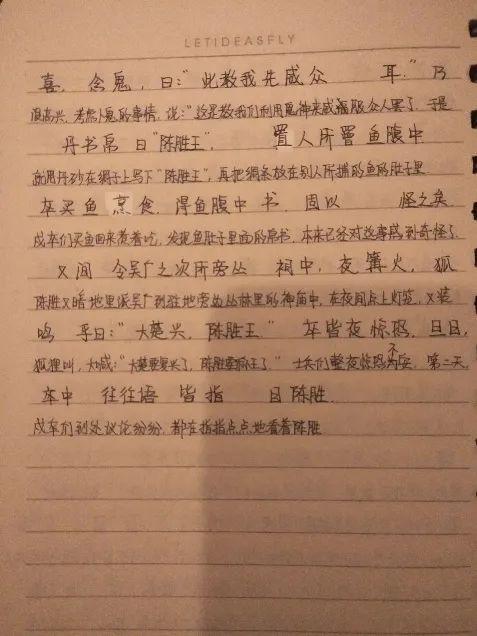 LETIDEASFLY
喜，念鬼，曰：“此教我先威众 耳。”乃
很高兴，考虑卜鬼的事情，说：“这是教我们利用鬼神来威福服众人罢了，于是
丹书帛 曰“陈胜王”， 置人所罾鱼腹中
就用丹砂在绸子上写下“陈胜王”，再把绸条放在别人所捕的鱼的肚子里
卒买鱼 烹食，得鱼腹中 书，固以 怪之矣
戍卒们买鱼回来煮着吃，发现鱼肚子里面的帛书，本来已经对这事感到奇怪了
又间 令吴广之次所旁丛 祠中，夜篝火，狐
陈胜又暗地里派吴广到驻地旁边丛林里的神庙中，在夜间点上灯笼，又装
鸣 乎曰：“大楚兴，陈胜王” 卒皆夜惊恐，旦日，
狐狸叫，大喊：“大楚要复兴了，陈胜要称王了。”士兵们整夜惊恐不安，第二天，
卒中 往往语 皆指 目陈胜
戍卒们到处议论纷纷，都在指指点点地看着陈胜